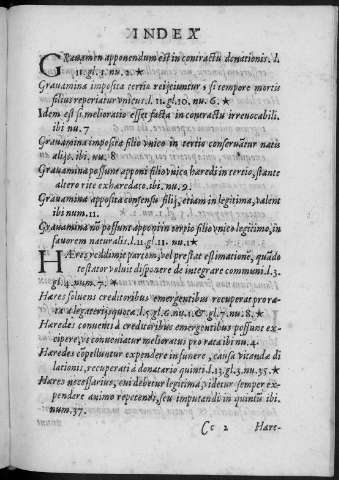 INDEX
GRauamen apponendum est in contractu donationis. l.
11. gl. 1. nu. 2. ★
Grauamina imposita tertio reijciuntur, si tempore mortis
filius reperiatur vnicus. l. 11. gl. 10. nu. 6. ★
Idem est si melioratio esset facta in contractu irreuocabili.
ibi nu. 7
Grauamina imposita filio vnico in tertio conseruãtur natis
alijs. ibi. nu. 8
Grauamina possunt apponi filio vnico haredi in tertio, stante
altero rite exharedato. ibi. nu. 9.
Grauamina apposita consensu filij, etiam in legitima, valent
ibi num. 11.
Grauamina nõ possunt apponi in terpio filio vnico legitimo, in
fauorem naturalis. l. 11. gl. 11. nu. 1 ★
HÆres reddimit partem, vel prestat estimationẽ, quado
testator voluit disponere de integra re communi. l. 3.
gl. 4. num. 7. ★
Hares soluens creditoribus emergentibus recuperat pro ra-
ra à legatarijs quota. l. 5. gl. 6. nu. 1. & gl. 7. nu. 8. ★
Haredes conuenti à creditoribus emergentibus possunt ex-
cipere, vt conueniatur melioratus pro rata ibi nu. 4.
Haredes cõpelluntur expendere in funere, causa vitanda di
lationis, recuperati à donatario quinti. l. 13. gl. 3. nu. 35. ★
Hares necessarius, cui debetur legitima, videtur semper ex-
pendere animo repetendi, seu imputandi in quintũ ibi.
num. 37.
Cc 2 Hare-